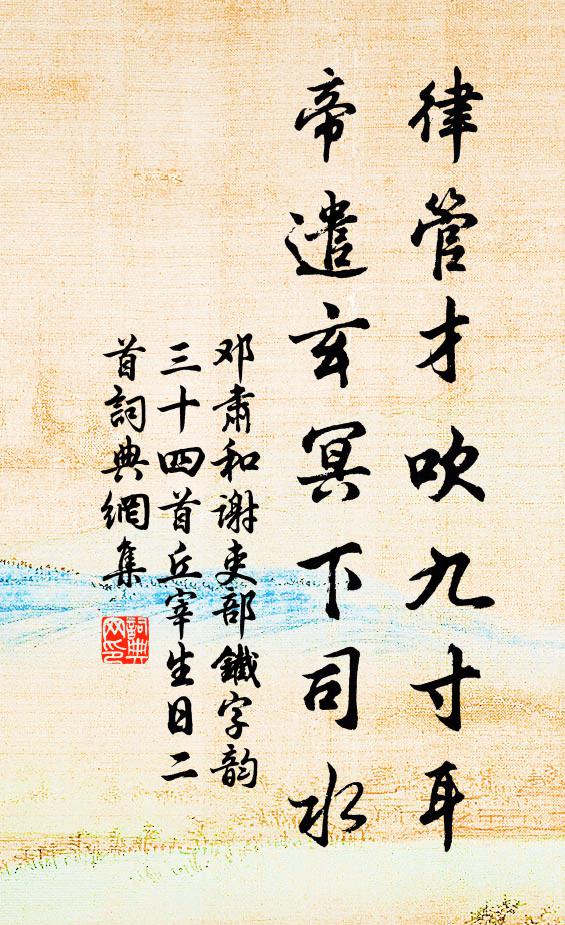 律管才吹九寸耳
帝遣玄冥下司水
邓肃和谢吏部鐵字韵
三十四首丘宰生日二
首詞典網集
詞典
网印